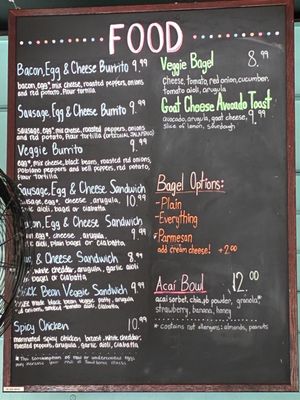 FOOD
Bacon, Egg & Cheese Burrito 9.99
bacon, egg*, mix cheese, roasted peppers, onions
and red potato, flour tortilla
Sausage, Egg & Cheese Burrito 9.99
Sausage, egg*, mix cheese, roasted peppers, onions
and red potato, flour tortilla
Veggie Burrito 9.99
egg*, mix cheese, black beans, roasted red onions,
poblano peppers and bell peppers, red potato,
flour tortilla
Sausage, Egg & Cheese Sandwich
egg*, cheese, arugula, 10.99
aioli, bagel or ciabatta
Bacon, Egg & Cheese Sandwich
egg*, cheese, arugula, 9.99
aioli, plain bagel or ciabatta.
& Cheese Sandwich 8.99
white cheddar, arugula, garlic aioli
bagel or ciabatta
Black Bean Veggie Sandwich 9.99
made black bean veggie patty, arugula
onions, tomato aioli, ciabatta
Spicy Chicken 10.99
marinated spicy chicken breast, white cheddar,
roasted peppers, arugula, garlic aioli, ciabatta.
* The consumption of raw or undercooked eggs
may increase your risk of foodborne illness
Veggie Bagel 8.99
Cheese, tomato, red onion, cucumber,
tomato aioli, arugula
Goat Cheese Avocado Toast
avocado, arugula, goat cheese, 9.99
slice of lemon, sourdough
Bagel Options:
- Plain
- Everything
* Parmesan
add cream cheese! + 2.00
Acai Bowl 12.00
acai sorbet, chia, pb powder, granola*
strawberry, banana, honey
* contains nut allergens: almonds, peanuts